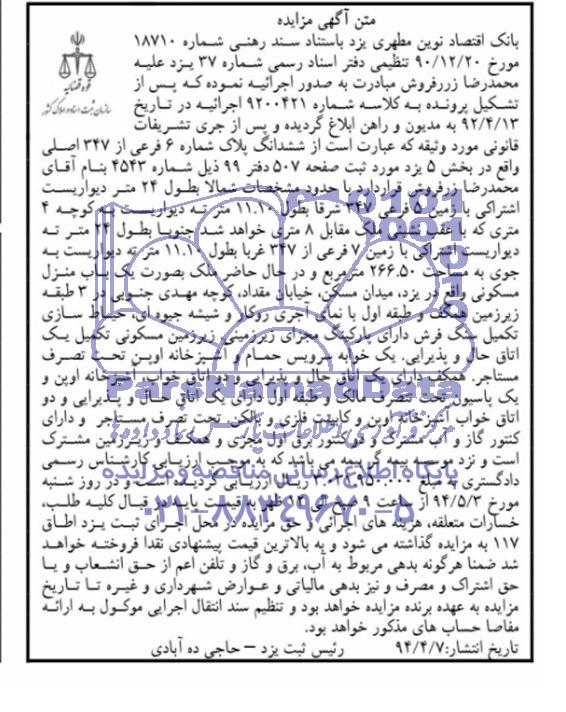 متن آگهی مزایده
بانک اقتصاد نوین مطهری یزد باستناد سند رهنی شماره ۱۸۷۱۰
مورخ ۹۰/۱۲/۲۰ تنظیمی دفتر اسناد رسمی شماره ۳۷ یزد علیه
محمدرضا زررفروش مبادرت به صدور اجرائیه نموده که پس از
تشکیل پرونده به کلاسه شماره ۹۲۰۰۴۲۱ اجرائیه در تاریخ
۹۲/۴/۱۳ به مدیون و راهن ابلاغ گردیده و پس از جری تشریفات
قوه قضائیه
سازمان ثبت اسناد و املاک کشور
قانونی مورد وثیقه که عبارت است از ششدانگ پلاک شماره ۶ فرعی از ۳۴۷ اصلی
واقع در بخش ۵ یزد مورد ثبت صفحه ۵۰۷ دفتر ۹۹ ذیل شماره ۴۵۴۳ بنام آقای
محمدرضا زرفروش قراردارد با حدود مشخصات شمالا بطول ۲۴ متر دیواریست
اشتراکی با زمین ۵ فرعی ۳۴۷ شرقا بطول ۱۱.۱۰ متر ته دیواریست به کوچه ۴
متری که با عقب نشینی ملک مقابل ۸ متری خواهد شد جنوبا بطول ۲۴ متر ته
دیواریست اشتراکی با زمین ۷ فرعی از ۳۴۷ غربا بطول ۱۱.۱۰ متر ته دیواریست به
جوی به مساحت ۲۶۶.۵۰ مترمربع و در حال حاضر ملک بصورت یک باب منزل
مسکونی واقع در یزد، میدان مسکن، خیابان مقداد، کوچه مهدی جنوبی در ۳ طبقه
زیرزمین همکف و طبقه اول با نمای آجری روکار و شیشه جیوه ای، حیاط سازی
تکمیل سنگ فرش دارای پارکینگ مجزای زیرزمینی، زیرزمین مسکونی تکمیل یک
اتاق حال و پذیرایی. یک خوابه سرویس حمام و آشپزخانه اوپن تحت تصرف
مستاجر. همکف دارای یک اتاق حال و پذیرایی و دو اتاق خواب، آشپزخانه اوپن و
یک پاسیون تحت تصرف مالک و طبقه اول دارای یک اتاق حال و پذیرایی و دو
اتاق خواب آشپزخانه اوپن و کابینت فلزی و بالکن تحت تصرف مستاجر و دارای
کنتور گاز و آب مشترک و دو کنتور برق اول مجزی و همکف و زیرزمین مشترک
است و نزد موسسه بیمه گر بیمه می باشد که به موجب ارزیابی کارشناس رسمی
دادگستری به مبلغ ریال ارزیابی گردیده است و در روز شنبه
مورخ ۹۴/۵/۳ از ساعت ۹ صبح الی ۱۲ ظهر از قیمت پایه در قبال کلیه طلب،
خسارات متعلقه، هزینه های اجرائی و حق مزایده در محل اجرای ثبت یزد اطاق
۱۱۷ به مزایده گذاشته می شود و به بالاترین قیمت پیشنهادی نقدا فروخته خواهد
شد ضمنا هرگونه بدهی مربوط به آب، برق و گاز و تلفن اعم از حق انشعاب و یا
حق اشتراک و مصرف و نیز بدهی مالیاتی و عوارض شهرداری و غیره تا تاریخ
مزایده به عهده برنده مزایده خواهد بود و تنظیم سند انتقال اجرایی موکول به ارائه
مفاصا حساب های مذکور خواهد بود.
تاریخ انتشار: ۹۴/۴/۷ رئیس ثبت یزد – حاجی ده آبادی
ParsNamadData
پایگاه اطلاع رسانی مناقصه و مزایده
۰۲۱-۸۸۳۴۹۶۷۰-۵